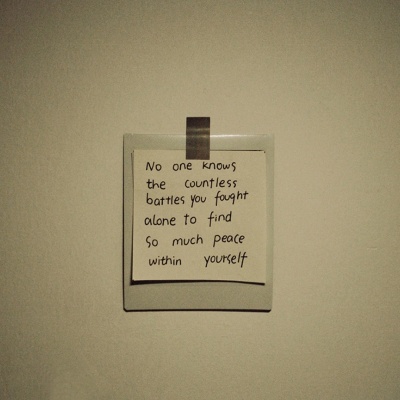 No one knows
the countless
battles you fought
alone to find
So much peace
within yourself